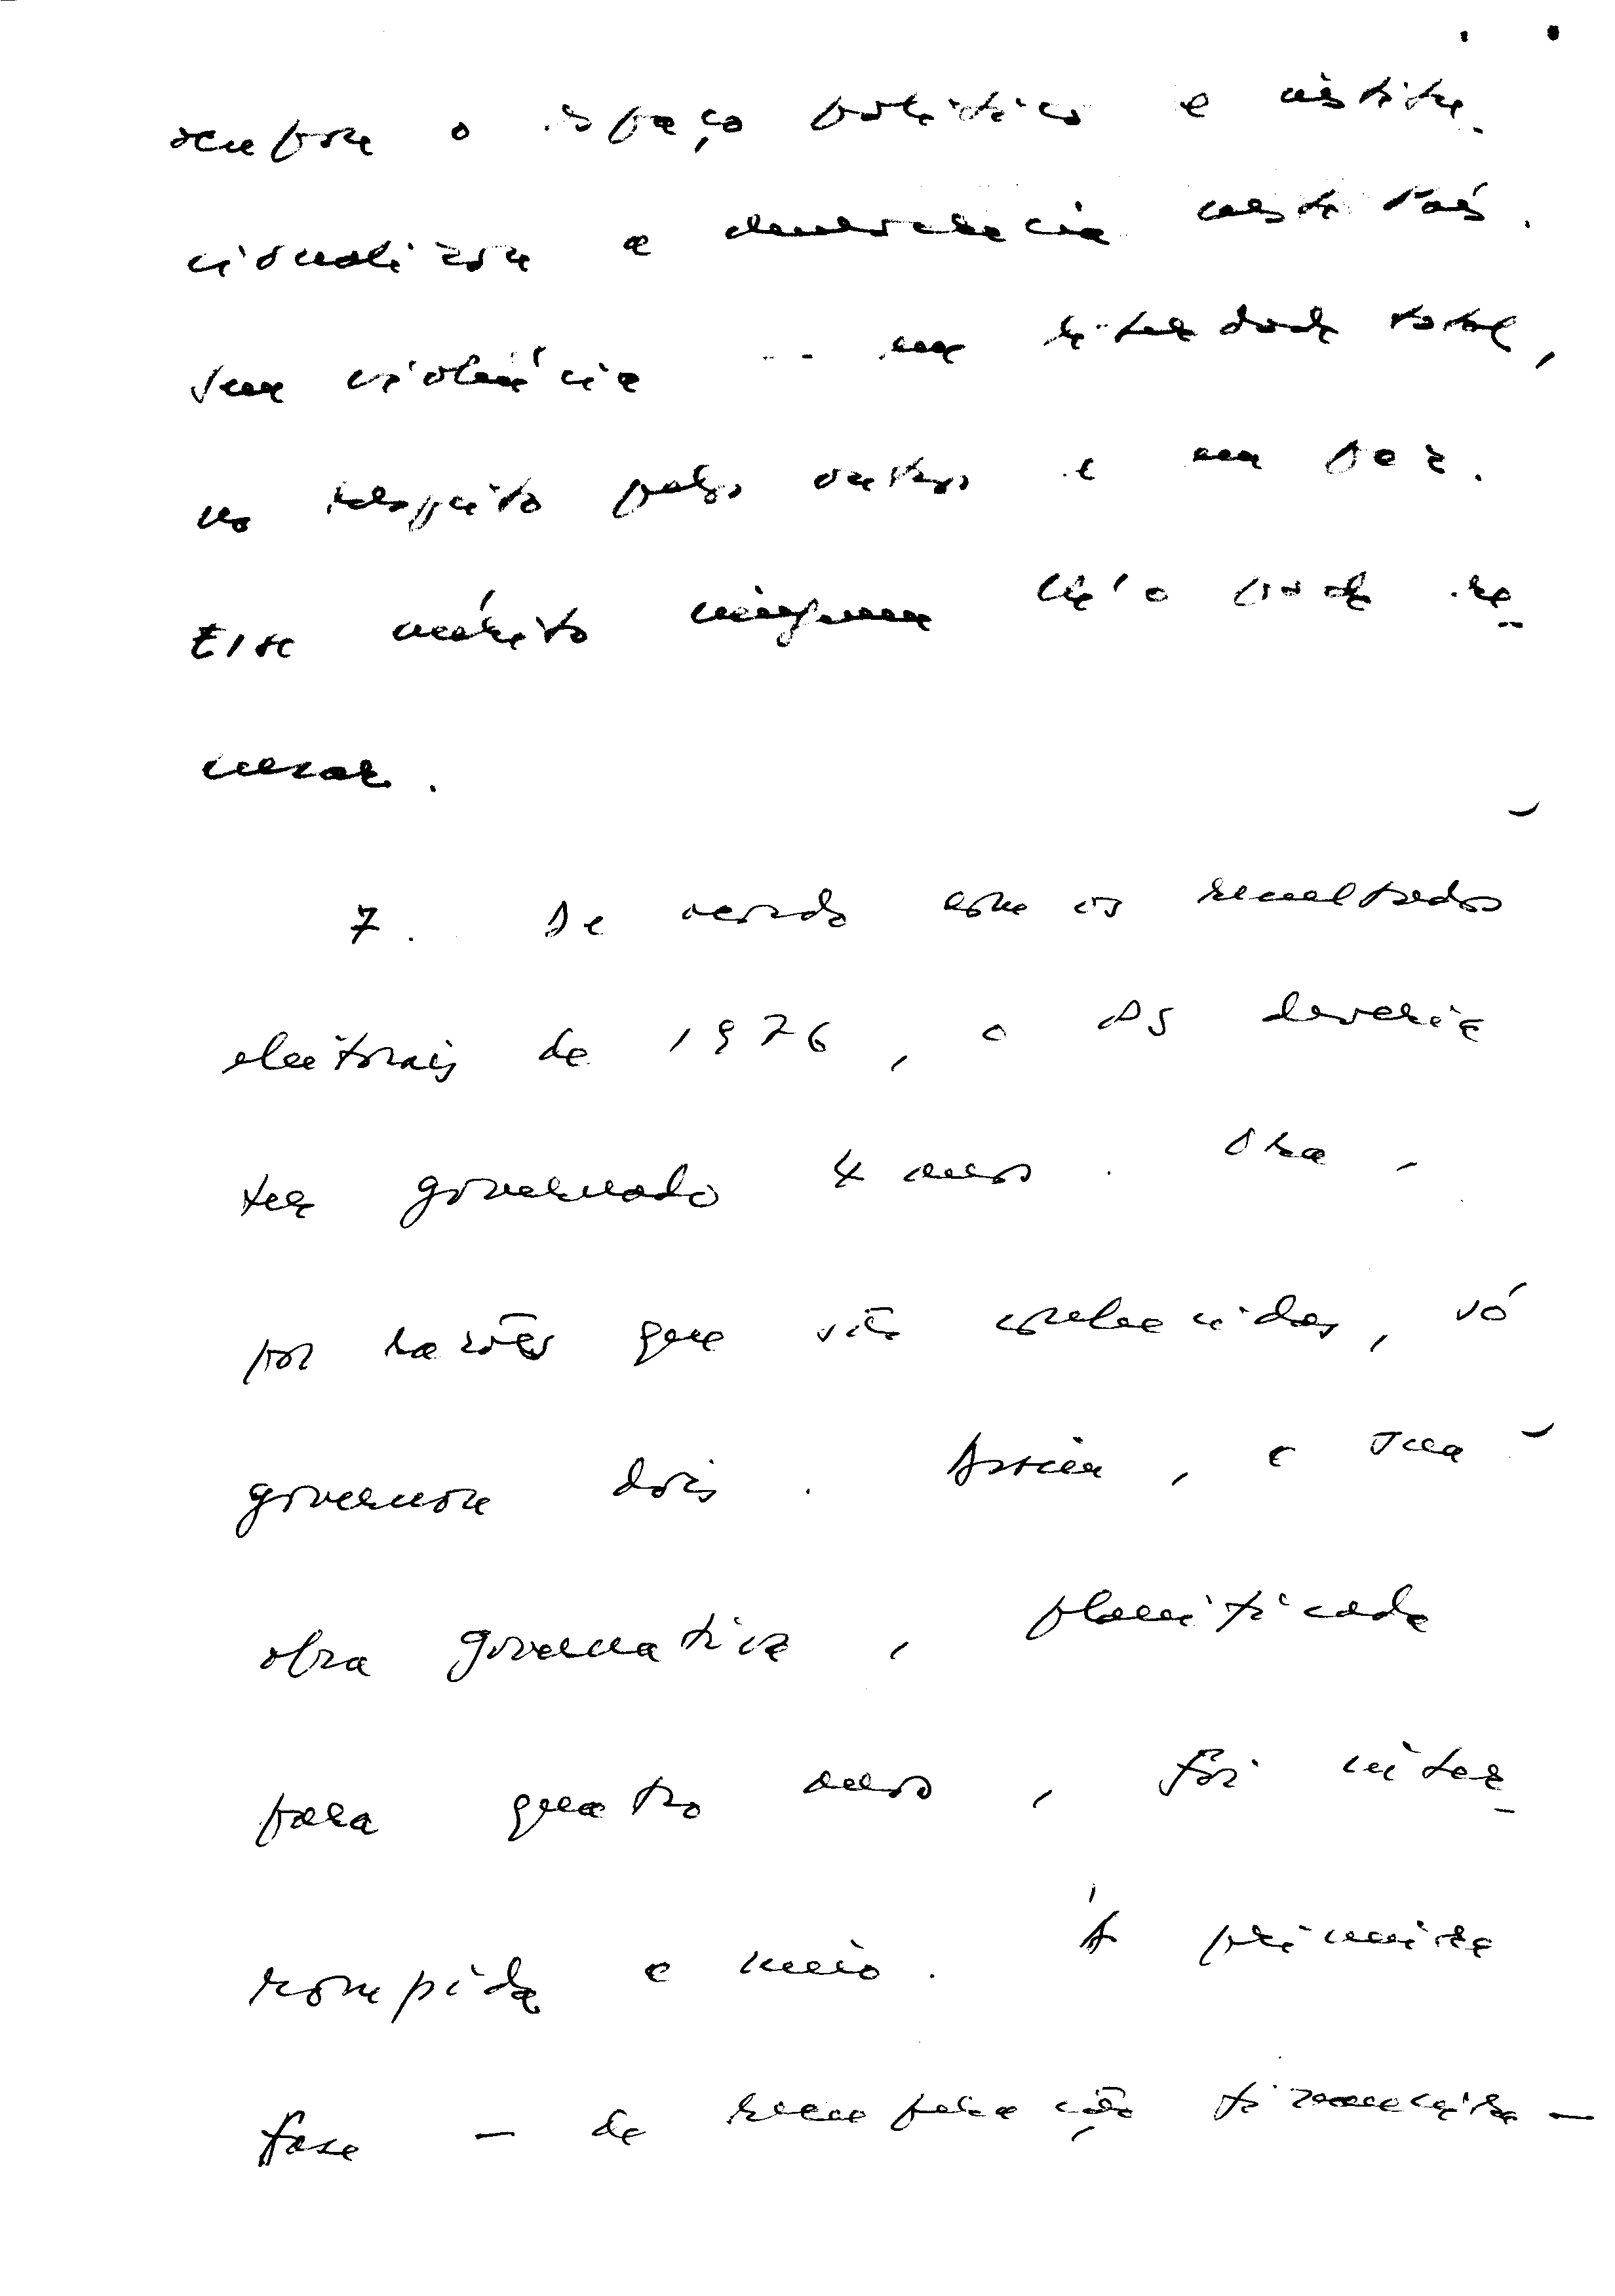 ocupou o espaço político e institu-
cionalizou a democracia neste País.
sem violência -- em liberdade total,
no respeito pelos outros e em paz.
Esse mérito ninguém lh'o pode re-
cusar.
7. De acordo com os resultados
eleitorais de 1976, o PS deveria
ter governado 4 anos. Ora -
por razões que são conhecidas, só
governou dois. Assim, a sua
obra governativa, planificada
para quatro anos, foi inter-
rompida a meio. A primeira
fase - de recuperação financeira -